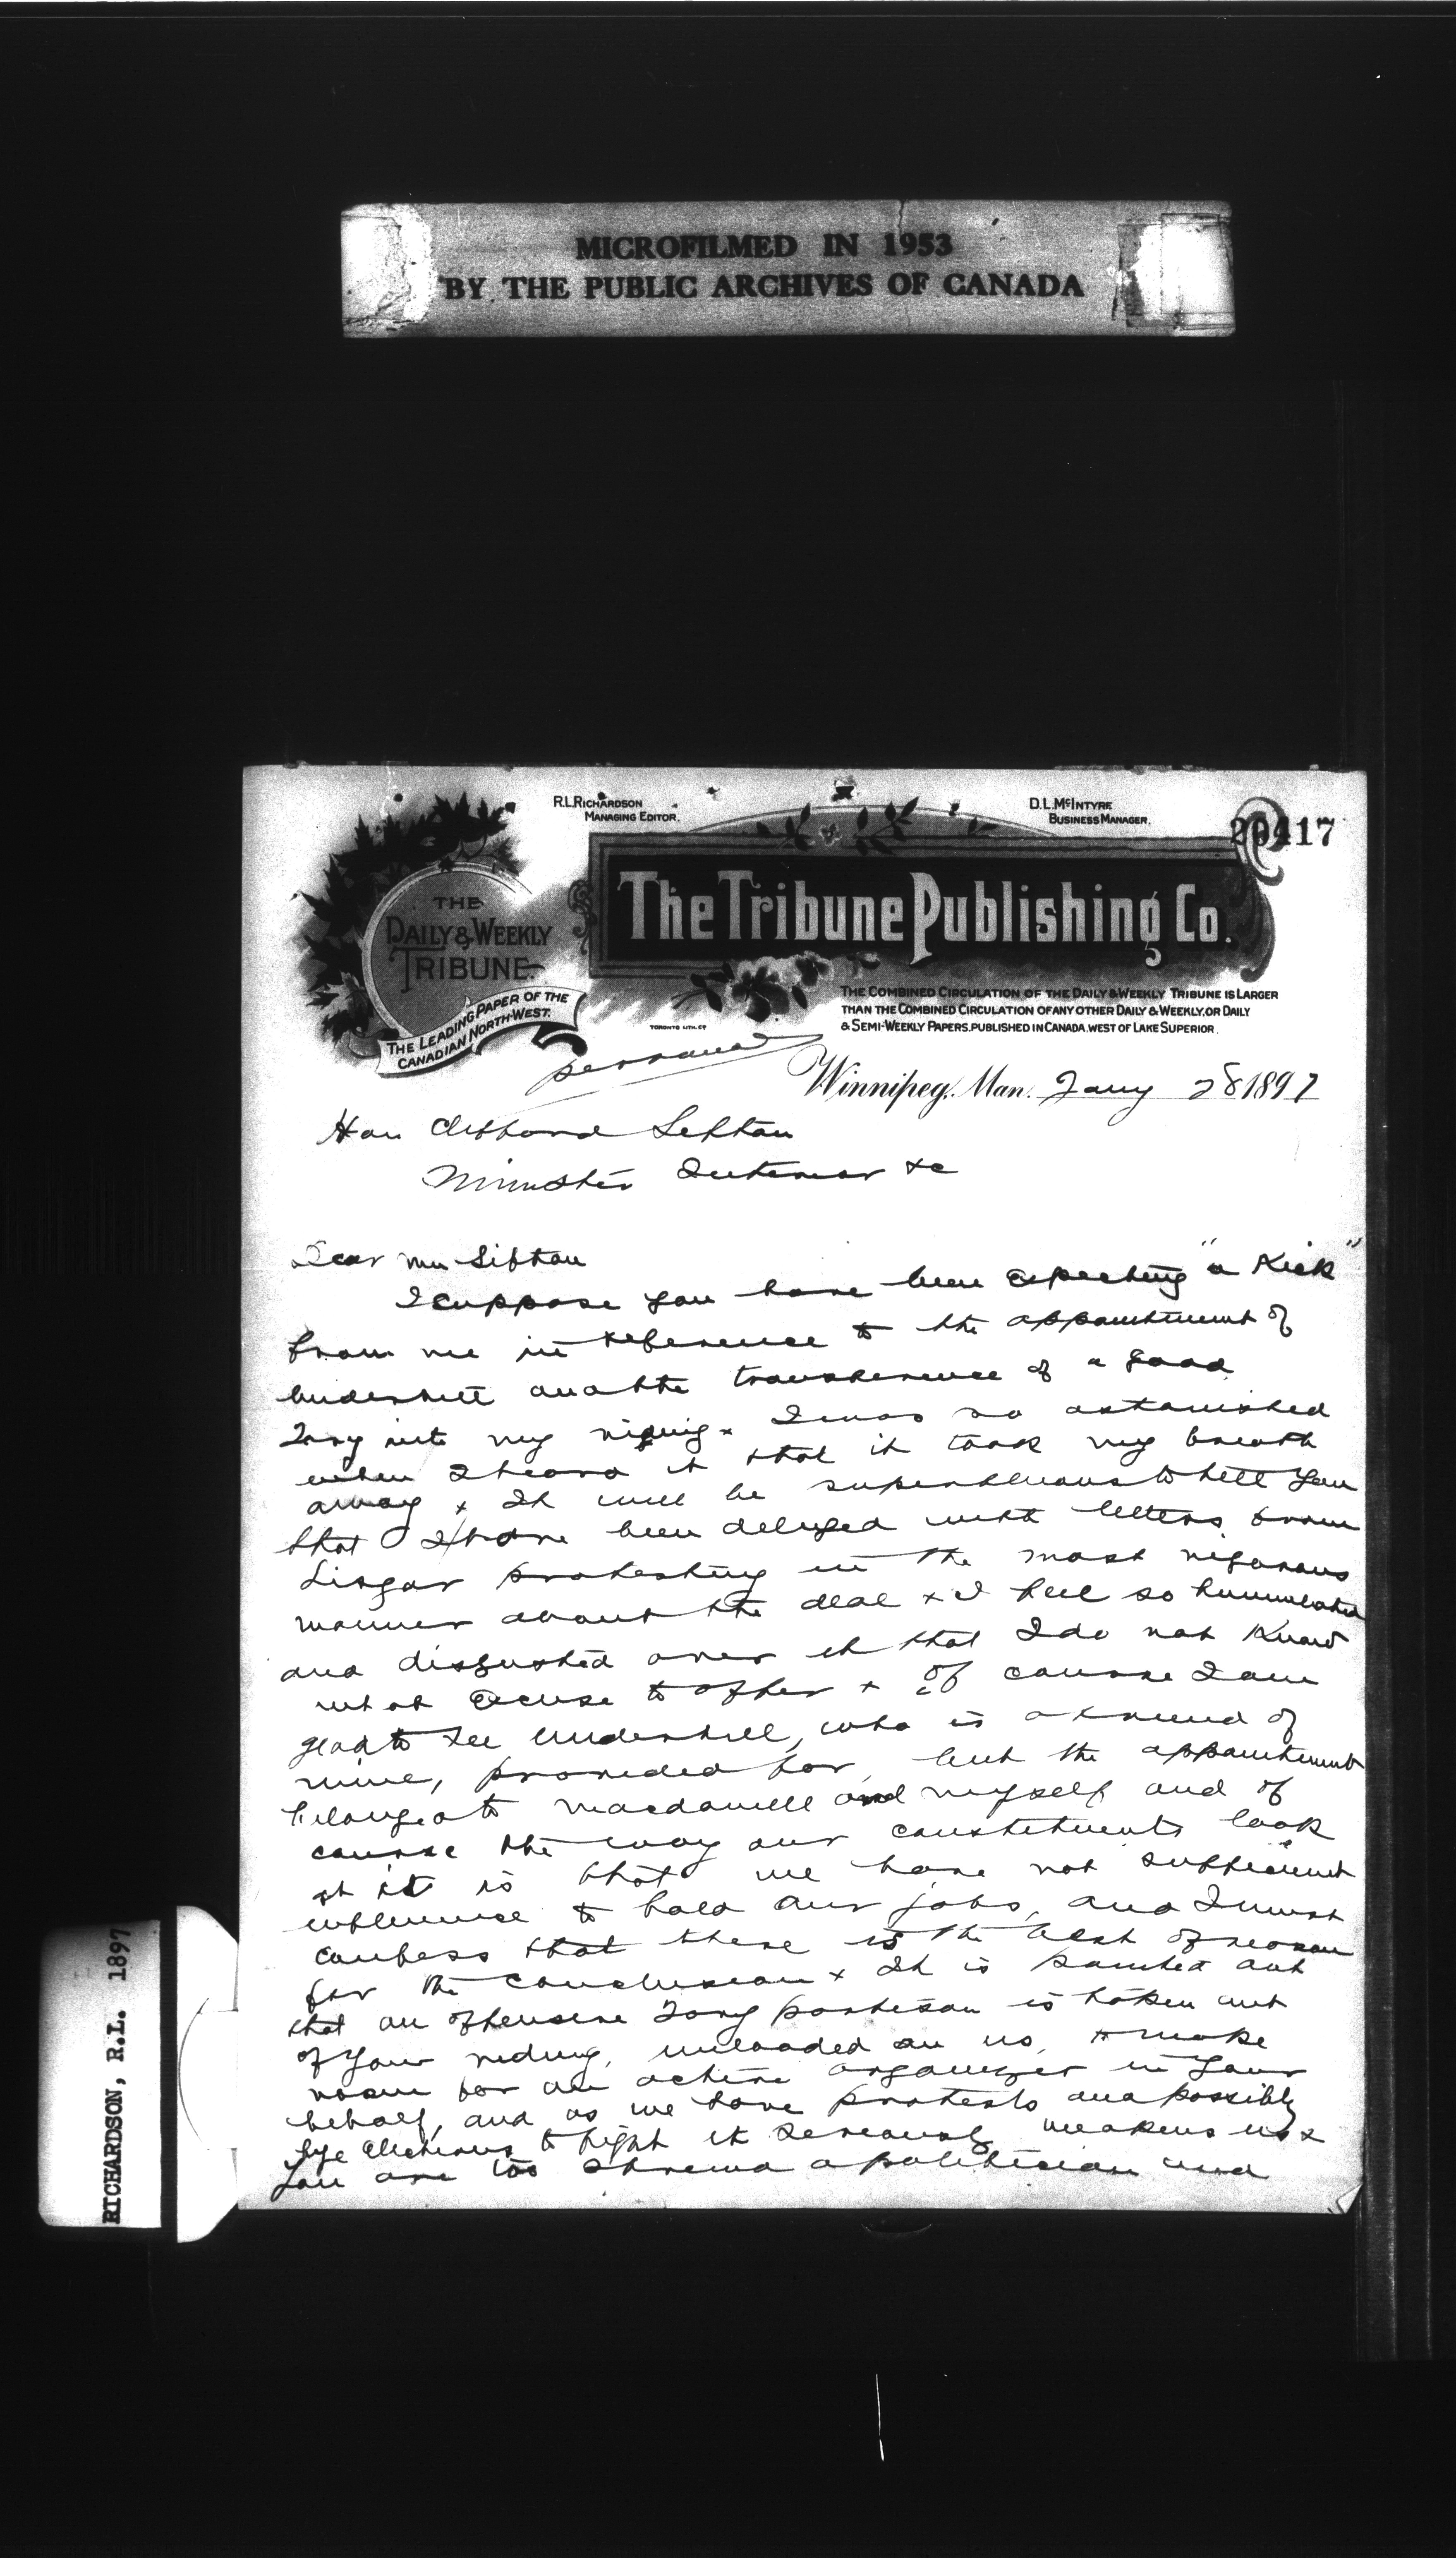 MICROFILMED IN 1953
BY THE PUBLIC ARCHIVES OF CANADA
R.L. RICHARDSON
MANAGING EDITOR.
D.L. McINTYRE
BUSINESS MANAGER.
20417
THE
DAILY & WEEKLY
TRIBUNE
THE LEADING PAPER OF THE
CANADIAN NORTH-WEST.
The Tribune Publishing Co.
THE COMBINED CIRCULATION OF THE DAILY & WEEKLY TRIBUNE IS LARGER
THAN THE COMBINED CIRCULATION OF ANY OTHER DAILY & WEEKLY, OR DAILY
& SEMI-WEEKLY PAPERS, PUBLISHED IN CANADA, WEST OF LAKE SUPERIOR.
TORONTO LITH. CO
personal
Winnipeg, Man. Jany 28 1897
Hon Clifford Sifton
Minister Interior &c
Dear Mr Sifton
I suppose you have been expecting "a Kick"
from me in reference to the appointment of
Underhill and the transference of a good
Tory into my riding x I was so astonished
when I heard it that it took my breath
away x It will be superfluous to tell you
that I have been deluged with letters from
Lisgar protesting in the most vigorous
manner about the deal x I feel so humiliated
and disgusted over it that I do not Know
what excuse to offer x of course I am
glad to see Underhill, who is a friend of
mine, provided for, but the appointment
belonged to Macdonell and myself and of
course the way our constituents look
at it is that we have not sufficient
influence to hold our jobs, and I must
confess that there is the best of reason
for the conclusion x It is pointed out
that an offensive Tory partisan is taken out
of your riding, unloaded on us, to make
room for an active organizer in your
behalf, and as we have protests and possibly
bye elections to fight it seriously weakens us x
you are too shrewd a politician and
RICHARDSON, R.L. 1897